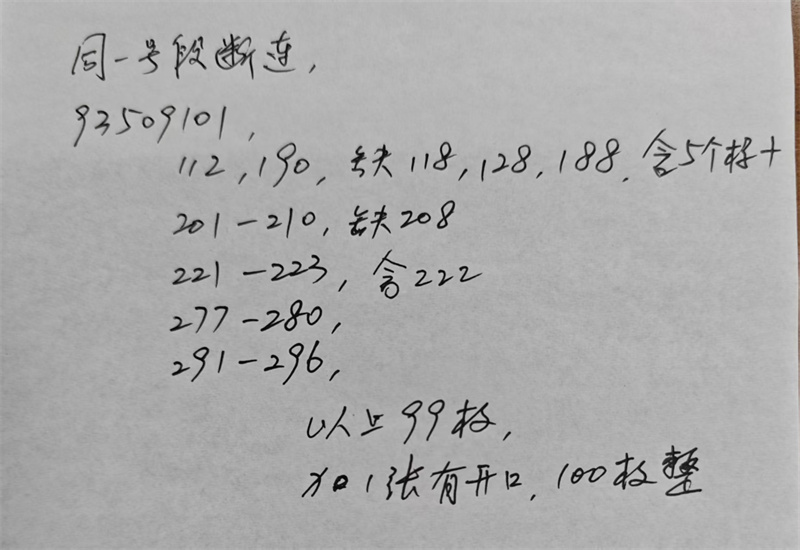 同一号段断连,
93509101,
112,190,缺118,128,188,含5个样+
201-210,缺208
221-223,含222
277-280,
291-296,
以上99枚,
1张有开口,100枚整